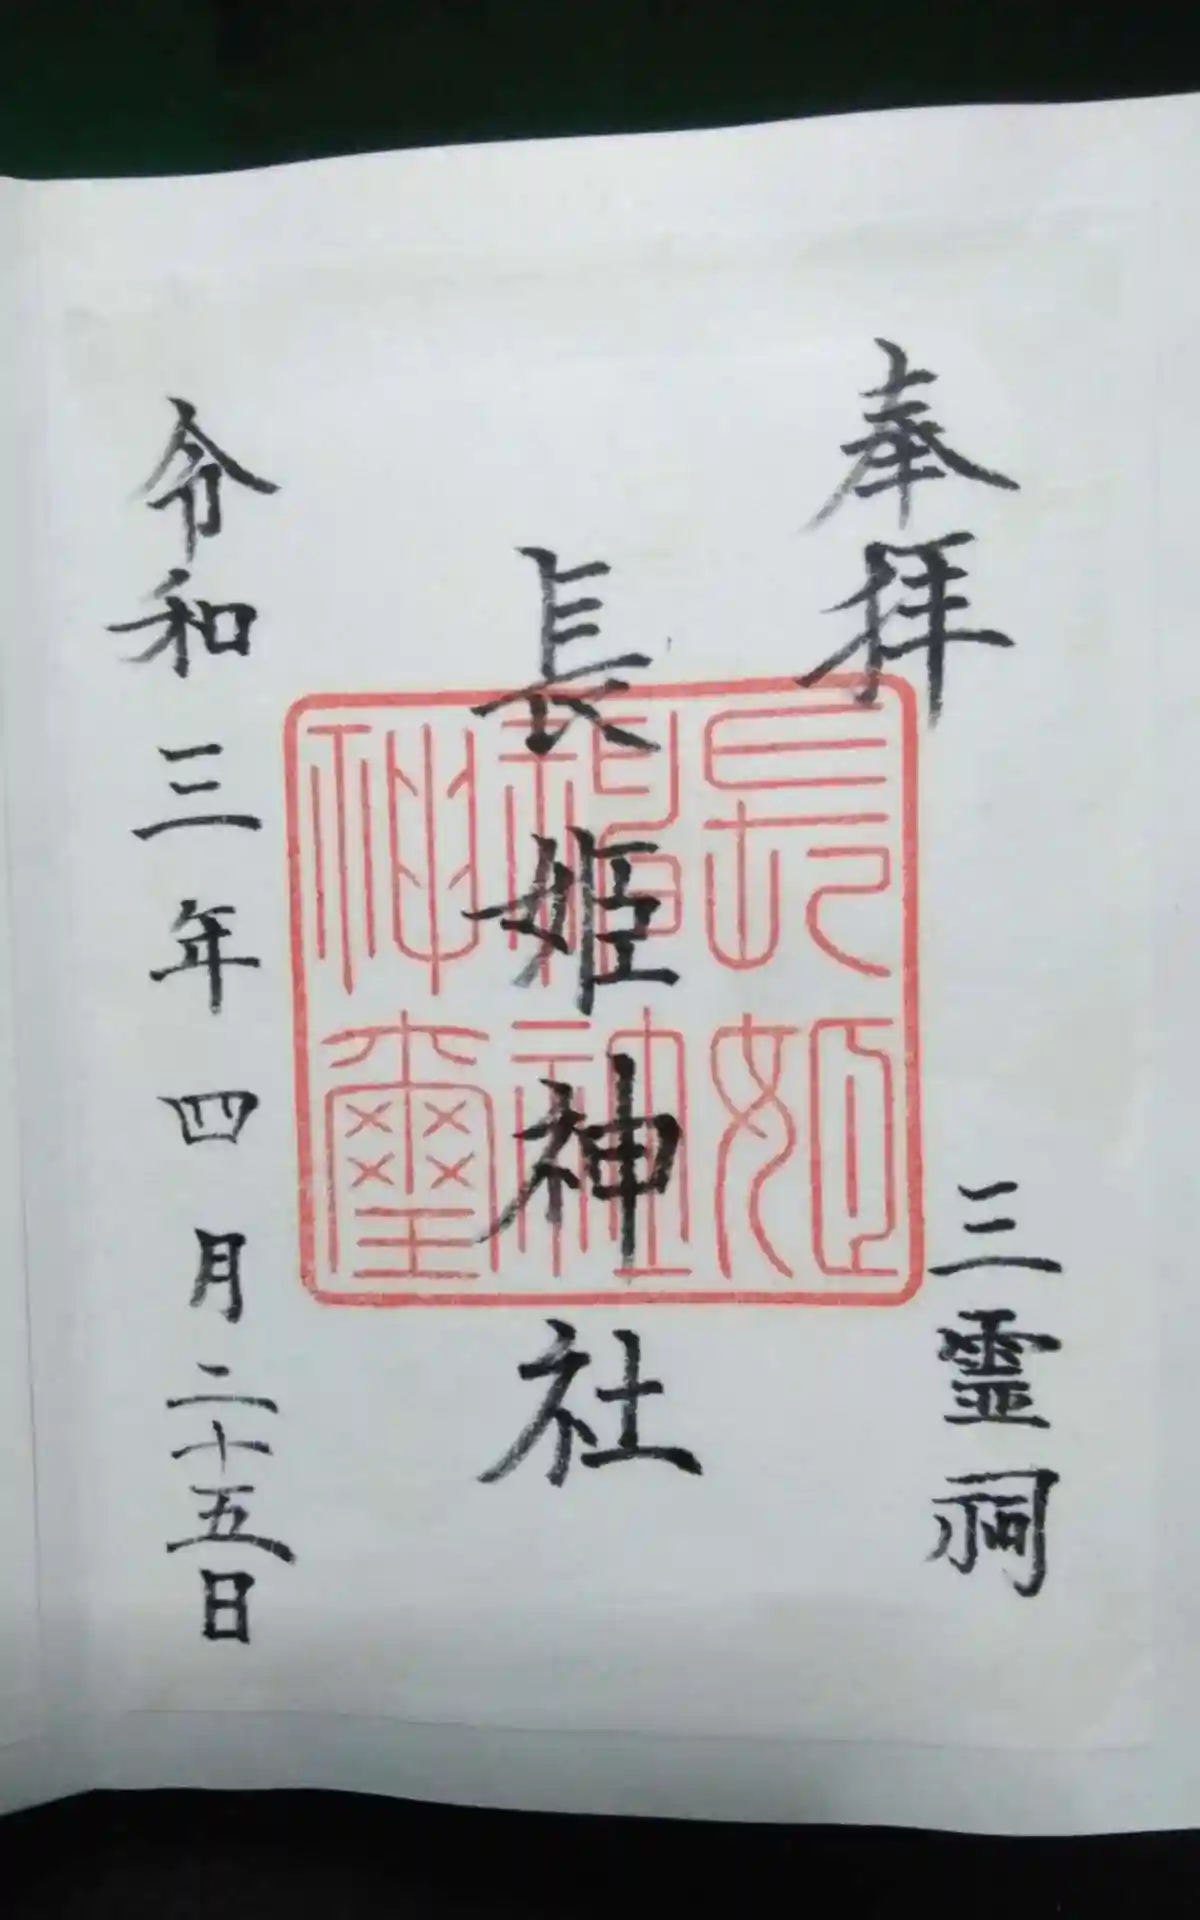 奉拝
三霊祠
長姫神社
長姫
稲社
神璽
令和三年四月二十五日